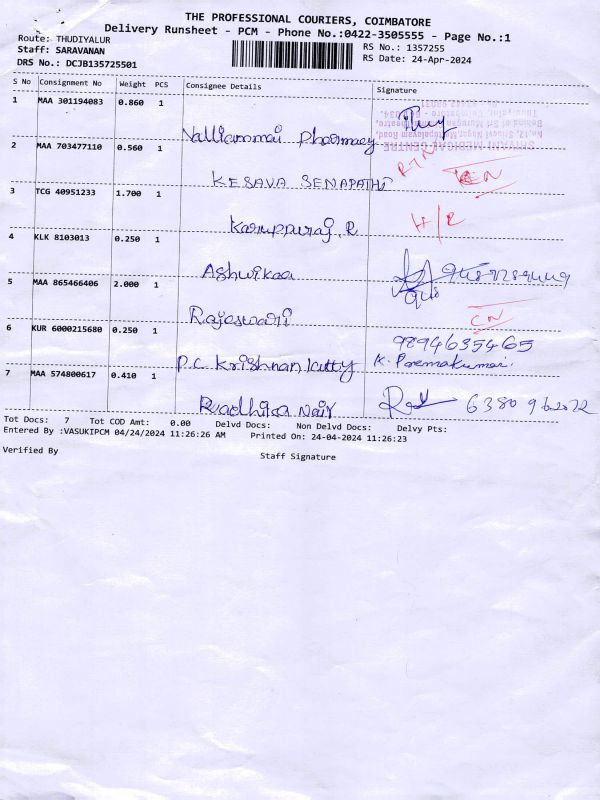 THE PROFESSIONAL COURIERS, COIMBATORE
Delivery Runsheet - PCM - Phone No.:0422-3505555 - Page No.:1
Route: THUDIYALUR
Staff: SARAVANAN
DRS No.: DCJB135725501
RS No.: 1357255
RS Date: 24-Apr-2024
S No Consignment No Weight PCS Consignee Details Signature
1 MAA 301194083 0.860 1
Nalliammai Pharmacy
SHIVANI MEDICAL CENTRE
2 MAA 703477110 0.560 1
KESAVA SENAPATHI
CN
3 TCG 40951233 1.700 1
Karuppuraj. R
4 KLK 8103013 0.250 1
Ashwikaa
5 MAA 865466406 2.000 1
Rajeswari
CN
6 KUR 6000215680 0.250 1
P.C. Krishnan kutty
9894635465
K. Premakumar.
7 MAA 574800617 0.410 1
Raadhika Nair
Tot Docs: 7 Tot COD Amt: 0.00 Delvd Docs: Non Delvd Docs: Delvy Pts:
Entered By :VASUKIPCM 04/24/2024 11:26:26 AM Printed On: 24-04-2024 11:26:23
Verified By
Staff Signature